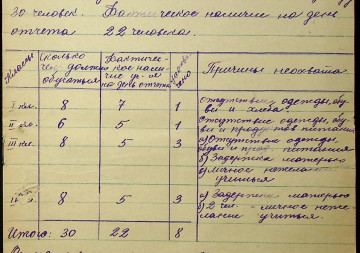 30 человек. Фактическое наличие на день
отчета 22 человека.
Классы
Сколько должны обучаться
Фактичес-
кое нали-
чие уч-ся
на день отчета
Причины неохвата
I кл. 8 7 1 отсутствие одежды, обу
ви и хлеба.
II кл. 6 5 1 Отсутствие одежды, обу
ви и продуктов питания
III кл. 8 5 3 а) Отсутствие одежды,
обуви и прод. питания
б) Задержка матерью
в) личное нежелание
учиться
IV кл. 8 5 3 а) Задержка матерью
2 чел. - личное неже-
лание учиться.
Итого: 30 22 8